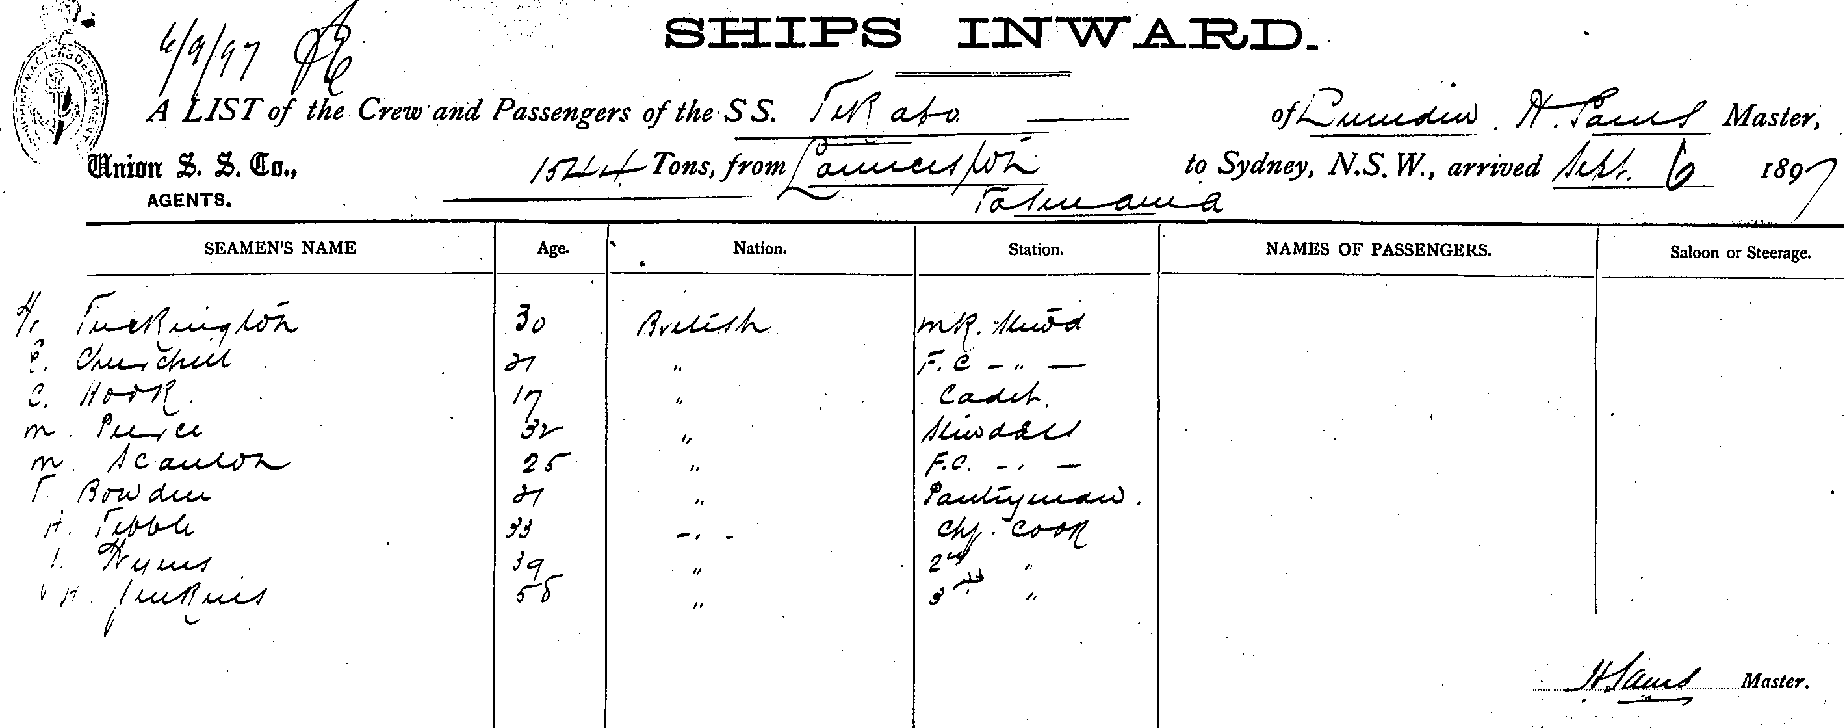 6/9/97
SHIPS INWARD.
A LIST of the Crew and Passengers of the SS. Tekapo of Dunedin. H. Sams Master,
Union S. S. Co., 1544 Tons, from Launceston to Sydney, N.S.W., arrived Sept. 6 1897
AGENTS. Tasmania
SEAMEN'S NAME Age. Nation. Station. NAMES OF PASSENGERS. Saloon or Steerage.
Turkington 30 British
E. Churchill 21 " F. C - " -
C. Hook. 17 " Cadet.
M. Pierce 32 " Stwdess
M. Scanlon 25 " F.C. - " -
T. Bowden 21 " Pantryman.
H. Tibble 33 - " - Chf. Cook
Hyms 39 " 2nd "
H. Jenkins 55 " 3rd "
H Sams Master.